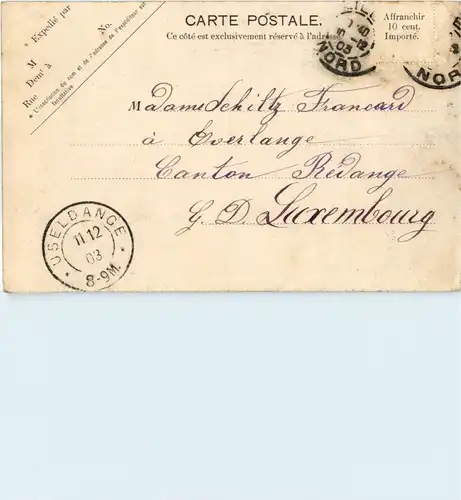 CARTE POSTALE.
Ce côté est exclusivement réservé à l'adresse
Affranchir
10 cent.
Importé.
Expédié par
M
Demt à
Rue
No.
* L'inscription du nom et de l'adresse de l'expéditeur est
facultative
NORD
10 12
03
Madame Schiltz Francard
à Everlange
Canton Rédange
G. D. Luxembourg
USELDANGE
11 12
03
8-9M.